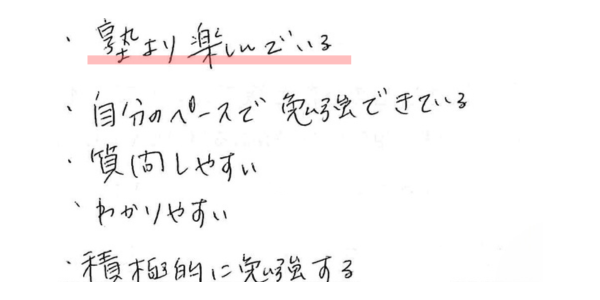 ・塾より楽しんでいる
・自分のペースで勉強できている
・質問しやすい
・わかりやすい
・積極的に勉強する